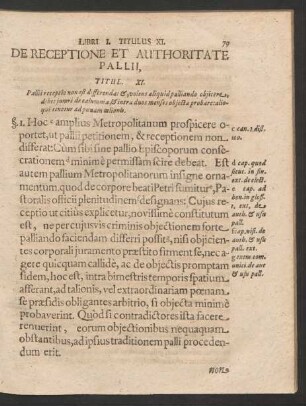 LIBRI I. TITULUS XI. 79
DE RECEPTIONE ET AUTHORITATE
PALLII,
TITUL. XI.
Pallii receptio non est differenda: & volens aliquid palliando objicere
debet jurare de calumnia, & intra duos menses objecta probare: alio-
qui tenetur ad pœnam talionis.
§. 1. Hoc amplius Metropolitanum prospicere o-
portet, ut pallii petitionem, & receptionem non
differat: Cum sibi sine pallio Episcoporum conse-
crationem minimè permissam scire debeat. Est
autem pallium Metropolitanorum insigne orna-
mentum, quod de corpore beati Petri sumitur, Pa-
storalis officii plenitudinem designans: Cujus rece-
ptio ut citius expediretur, novissimè constitutum
est, ne per cujusvis criminis objectionem forte
palliando faciendam differri possit, nisi objicien-
tes corporali juramento præstito firment se, nec a-
gere quicquam callidè, ac de objectis promptam
fidem, hoc est, intra bimestris temporis spatium
afferrent, ad talionis, vel extraordinariam pœnam
se præsidis obligantes arbitrio, si objecta minimè
probaverint. Quod si contradictores ista facere
renuerint, eorum objectionibus nequaquam
obstantibus, ad ipsius traditionem pallii proceden-
dum erit.
c can. 1. dist.
d cap. quod
sicut. in fin.
ext. de elect.
e cap. ad
ext. de
auth. & usu
pall.
f cap. nisi. de
auth. & usu
pall. ext.
& usu pall.
non